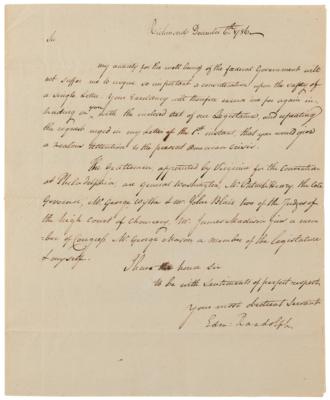 Richmond December 6th 1786
Sir
My anxiety for the well being of the fœderal Government will
not suffer me to risque so important a consideration upon the safety of
a single letter. Your Excellency will therefore excuse me for again in-
truding on you with the inclosed act of our Legislature, and repeating
the request urged in my letter of the 1st instant, that you would give
a zealous attention to the present American crisis.
The Gentlemen appointed by Virginia for the Convention
at Philadelphia, are General Washington, Mr Patrick Henry the late
Governor, Mr George Wythe & Mr John Blair two of the Judges of
the high Court of Chancery, Mr James Madison a mem-
ber of Congress Mr George Mason a member of the Legislature
& myself.
I have the honor Sir
to be with sentiments of perfect respect,
your most obedient Servant
Edm: Randolph